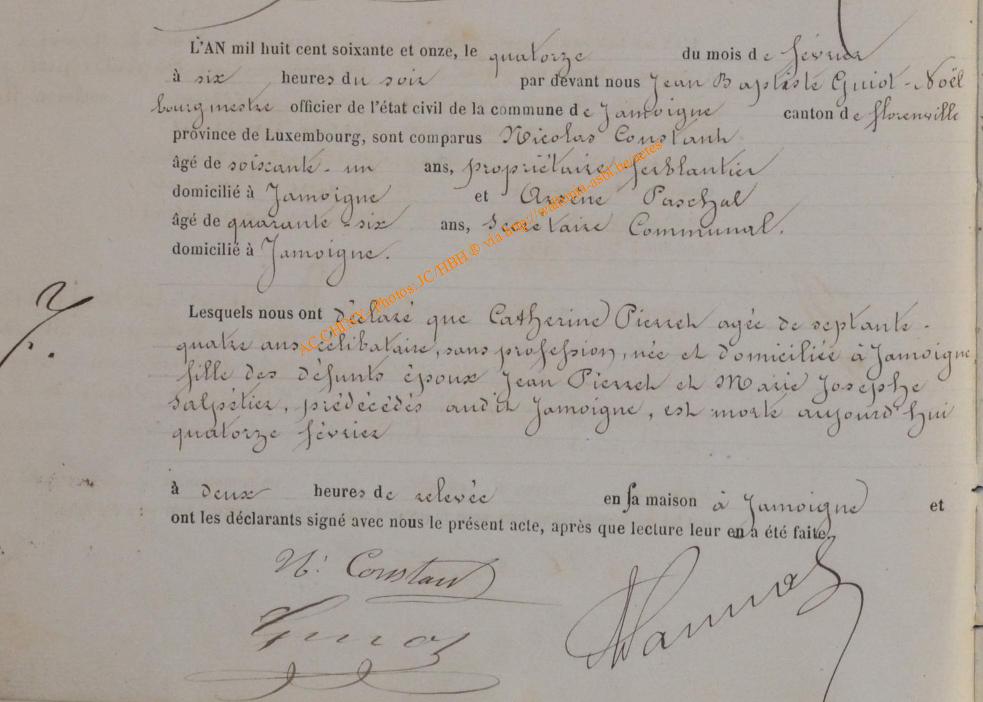 L'AN mil huit cent soixante et onze, le quatorze du mois de février
à six heures du soir par devant nous Jean Baptiste Guiot-Noël
bourgmestre officier de l'état civil de la commune de Jamoigne canton de florenville
province de Luxembourg, sont comparus Nicolas Constant
âgé de soixante-un ans, propriétaire ferblantier
domicilié à Jamoigne et Arsène Paschal
âgé de quarante-six ans, Secrétaire Communal.
domicilié à Jamoigne.
Lesquels nous ont déclaré que Catherine Pierret agée de septante-
quatre ans célibataire, sans profession, née et domiciliée à Jamoigne
fille des défunts époux Jean Pierret et Marie Josephe
Salpétier, prédécédés audit Jamoigne, est morte aujourd'hui
quatorze février
à deux heures de relevée en sa maison à Jamoigne et
ont les déclarants signé avec nous le présent acte, après que lecture leur en a été faite.
N. Constant
ACCHDXX - Photos JC/HBH © via http://watterpin-asbl.be/actes